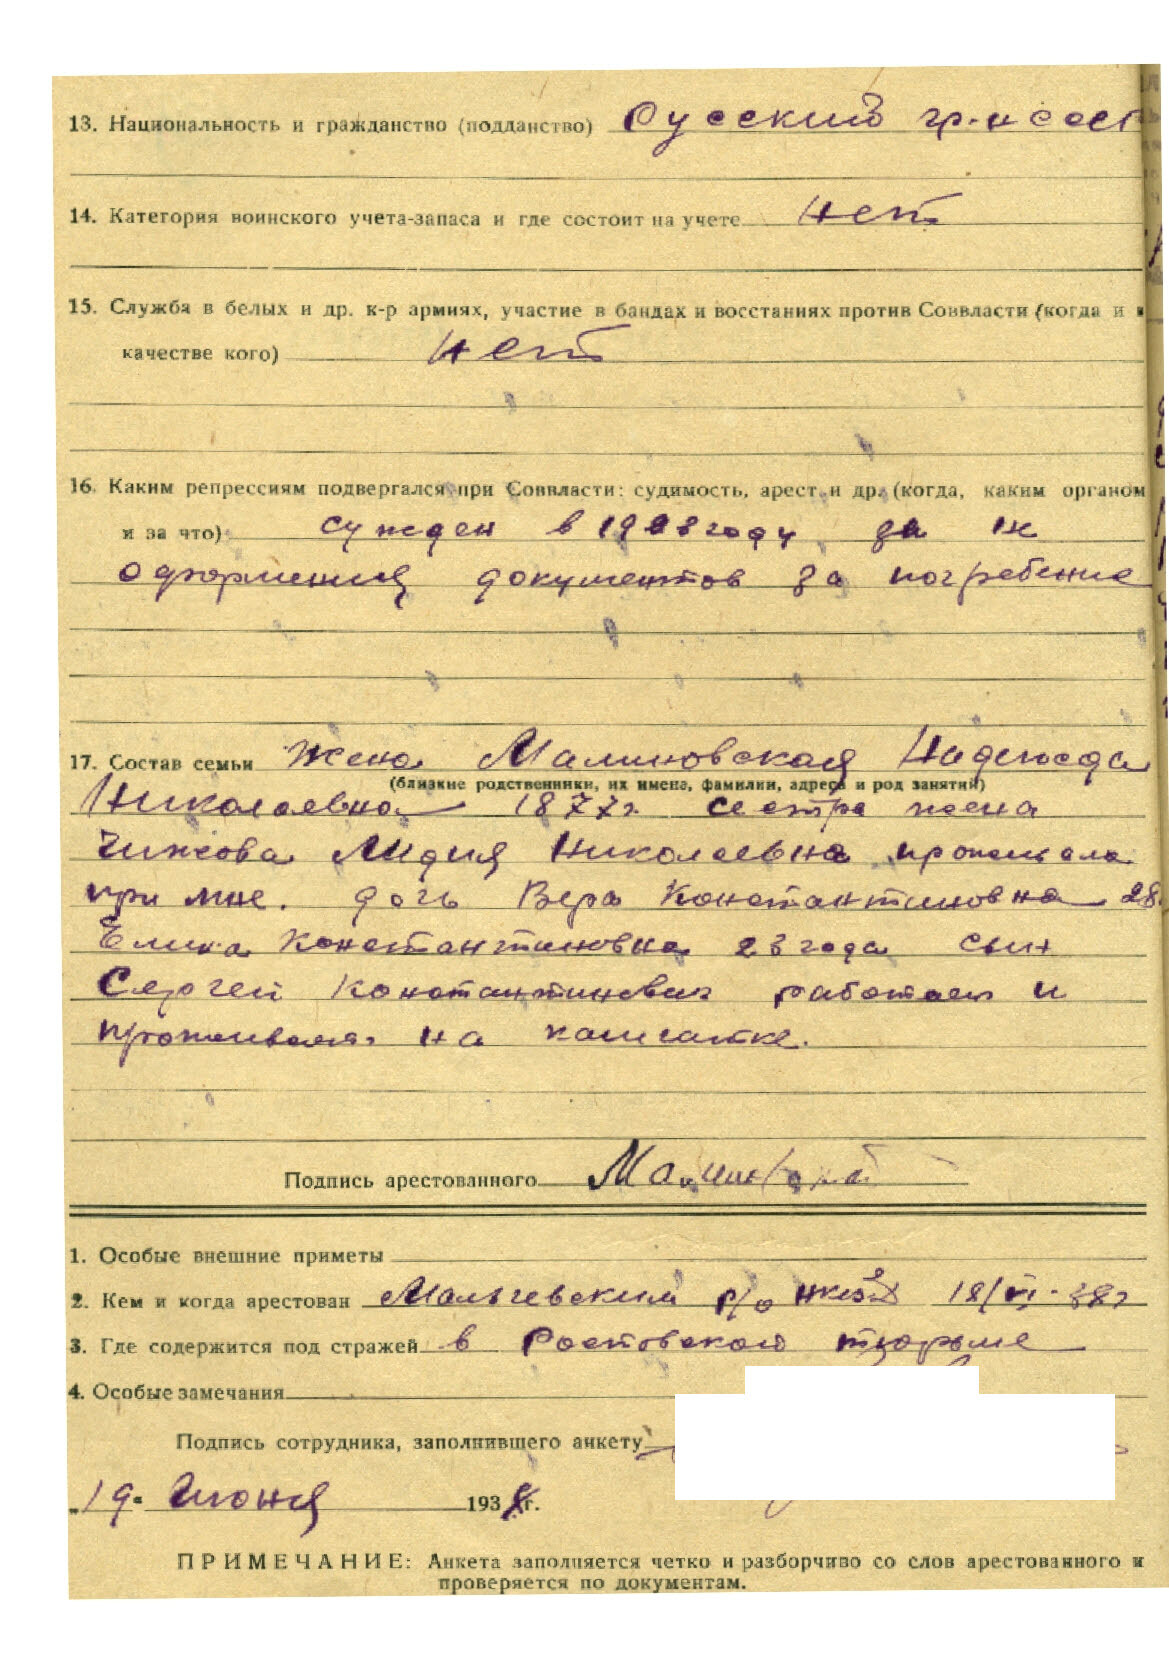 13. Национальность и гражданство (подданство) Русский гр-н ссср
14. Категория воинского учета-запаса и где состоит на учете нет
15. Служба в белых и др. к-р армиях, участие в бандах и восстаниях против Соввласти (когда и в
качестве кого) нет
16. Каким репрессиям подвергался при Соввласти: судимость, арест и др. (когда, каким органом
и за что) сужден в 1928 году за не
оформления документов за погребение
17. Состав семьи Жена Малиновская Надежда
(близкие родственники, их имена, фамилии, адреса и род занятий)
Николаевна 1877г. сестра жена
Чижова Лидия Николаевна проживала
при мне. дочь Вера Константиновна 28
Константиновна 23 года сын
Сергей Константинович работает и
проживает на камчатке.
Подпись арестованного
1. Особые внешние приметы
2. Кем и когда арестован Мальчевским р/о НКВД 18/VI-38г
3. Где содержится под стражей в Ростовской тюрьме
4. Особые замечания
Подпись сотрудника, заполнившего анкету
„19" Июня 1938г.
ПРИМЕЧАНИЕ: Анкета заполняется четко и разборчиво со слов арестованного и
проверяется по документам.